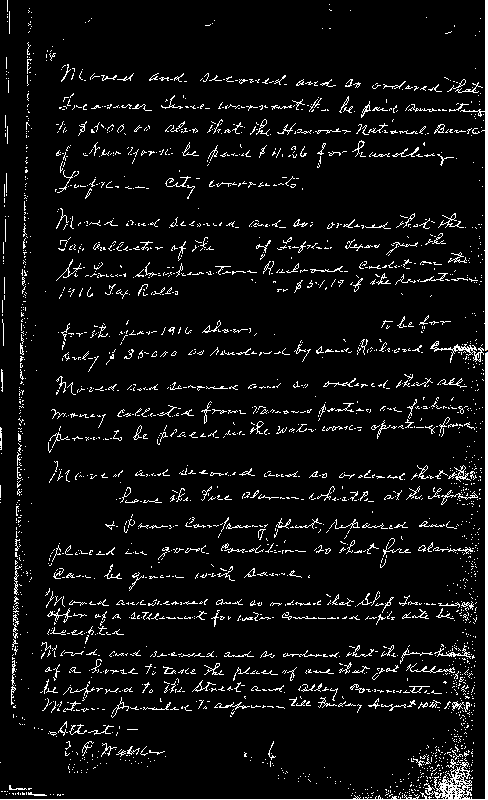 Moved and second and so ordered that
Treasurer Time warrant #- be paid amounting
to $500.00 also that the Hanover National Bank
of New York be paid $4.26 for handling
Lufkin City warrants.
Moved and second and so ordered that the
Tax Collector of the of Lufkin Texas give the
St Louis Southwestern Railroad Credit on the
1916 Tax Rolls or $51.19 if the rendition
for the year 1916 shows, to be for
only $3500.00 as rendered by said Railroad Company
Moved and second and so ordered that all
money collected from various parties on fishing
permits be placed in the water works operating fund
Moved and second and so ordered that the
have the fire alarm whistle at the Lufkin
& Power Company plant, repaired and
placed in good condition so that fire alarm
can be given with same.
Moved and second and so ordered that
offer of a settlement for water consumed upto date be
accepted
Moved and second and so ordered that the purchase
of a horse to take the place of one that got killed
be referred to the Street and Alley Committee
Motion prevailed to adjourn till Friday August 10th,
Attest:-